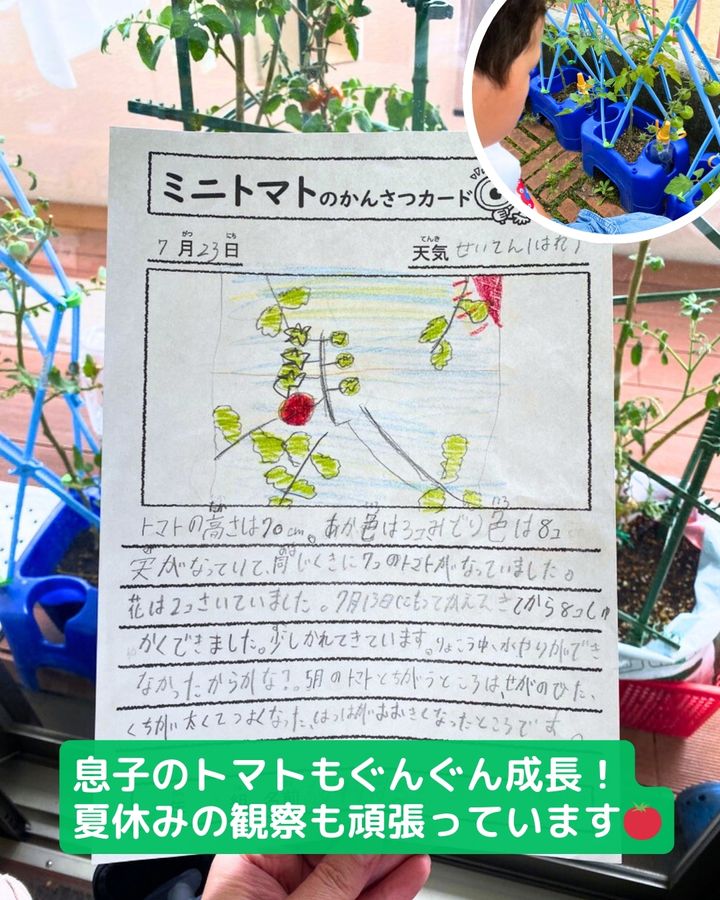 ミニトマトのかんさつカード
7月23日 天気 せいてん(はれ)
トマトの高さは70cm。あか色は3コみどり色は8コ
実がなっていて、同じくきに7つのトマトがなっていました。
花は2コさいていました。7月13日にもってかえってきてから8コしゅ
かくできました。少しかれてきています。りょこう中、水やりができ
なかったからかな?。5月のトマトとちがうところは、せがのびた、
くきが太くてつよくなった、はっぱがおおきくなったところです。
息子のトマトもぐんぐん成長！
夏休みの観察も頑張っています🍅